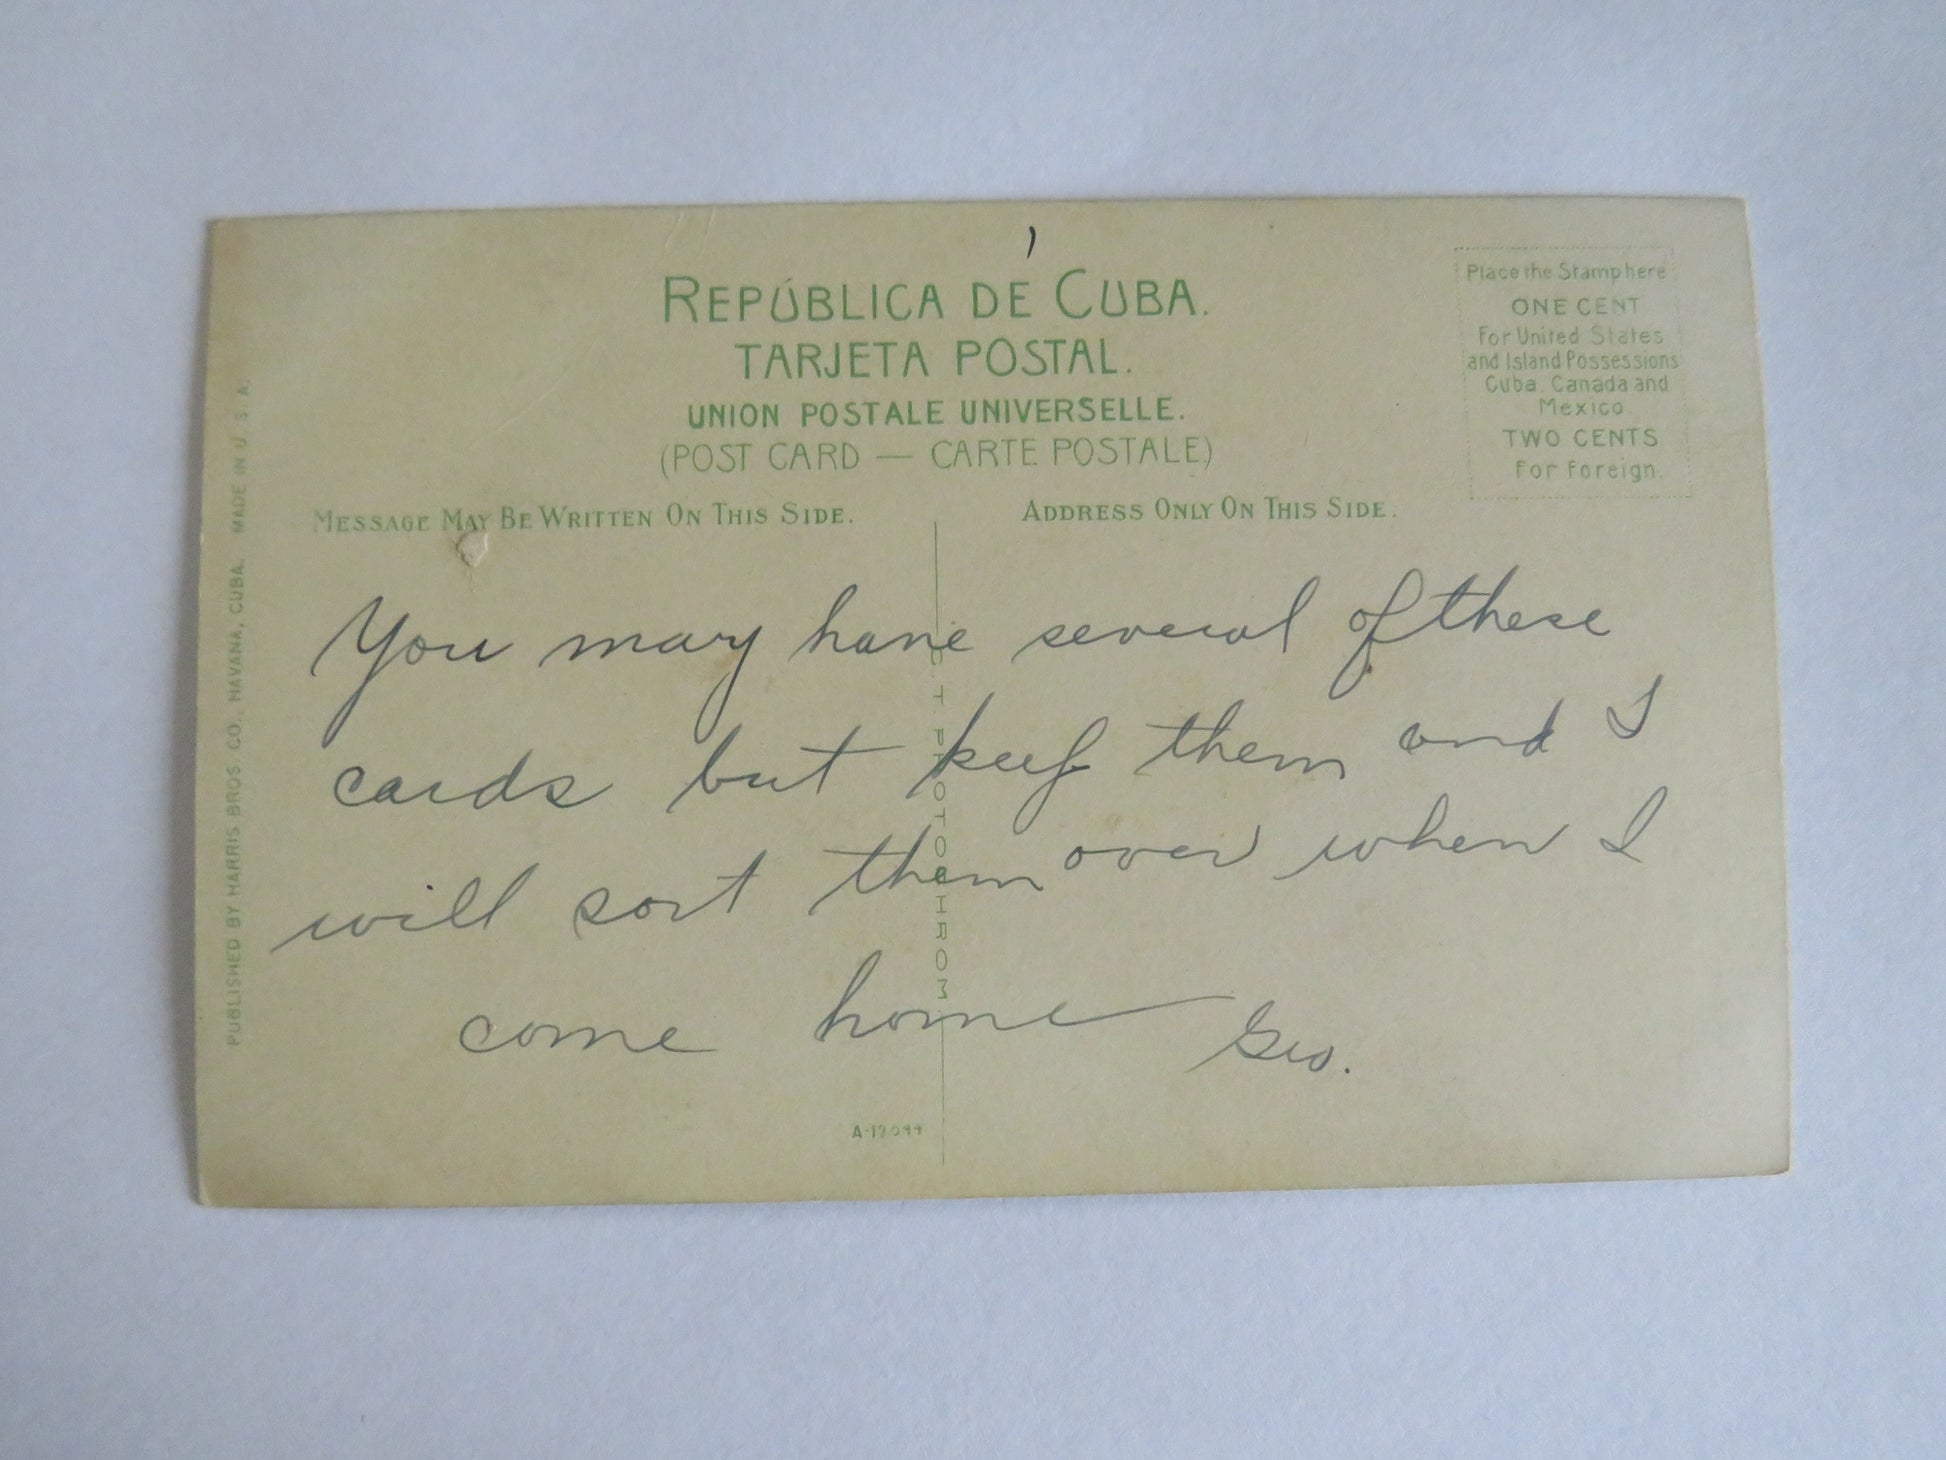 REPÚBLICA DE CUBA.
TARJETA POSTAL.
UNION POSTALE UNIVERSELLE.
(POST CARD — CARTE POSTALE)
Place the Stamp here
ONE CENT
For United States
and Island Possessions
Cuba, Canada and
Mexico.
TWO CENTS
For Foreign.
MESSAGE MAY BE WRITTEN ON THIS SIDE.
ADDRESS ONLY ON THIS SIDE.
You may have several of these
cards but keep them and I
will sort them over when I
come home Geo.
C. T. PHOTOCHROM
PUBLISHED BY HARRIS BROS. CO., HAVANA, CUBA. MADE IN U. S. A.